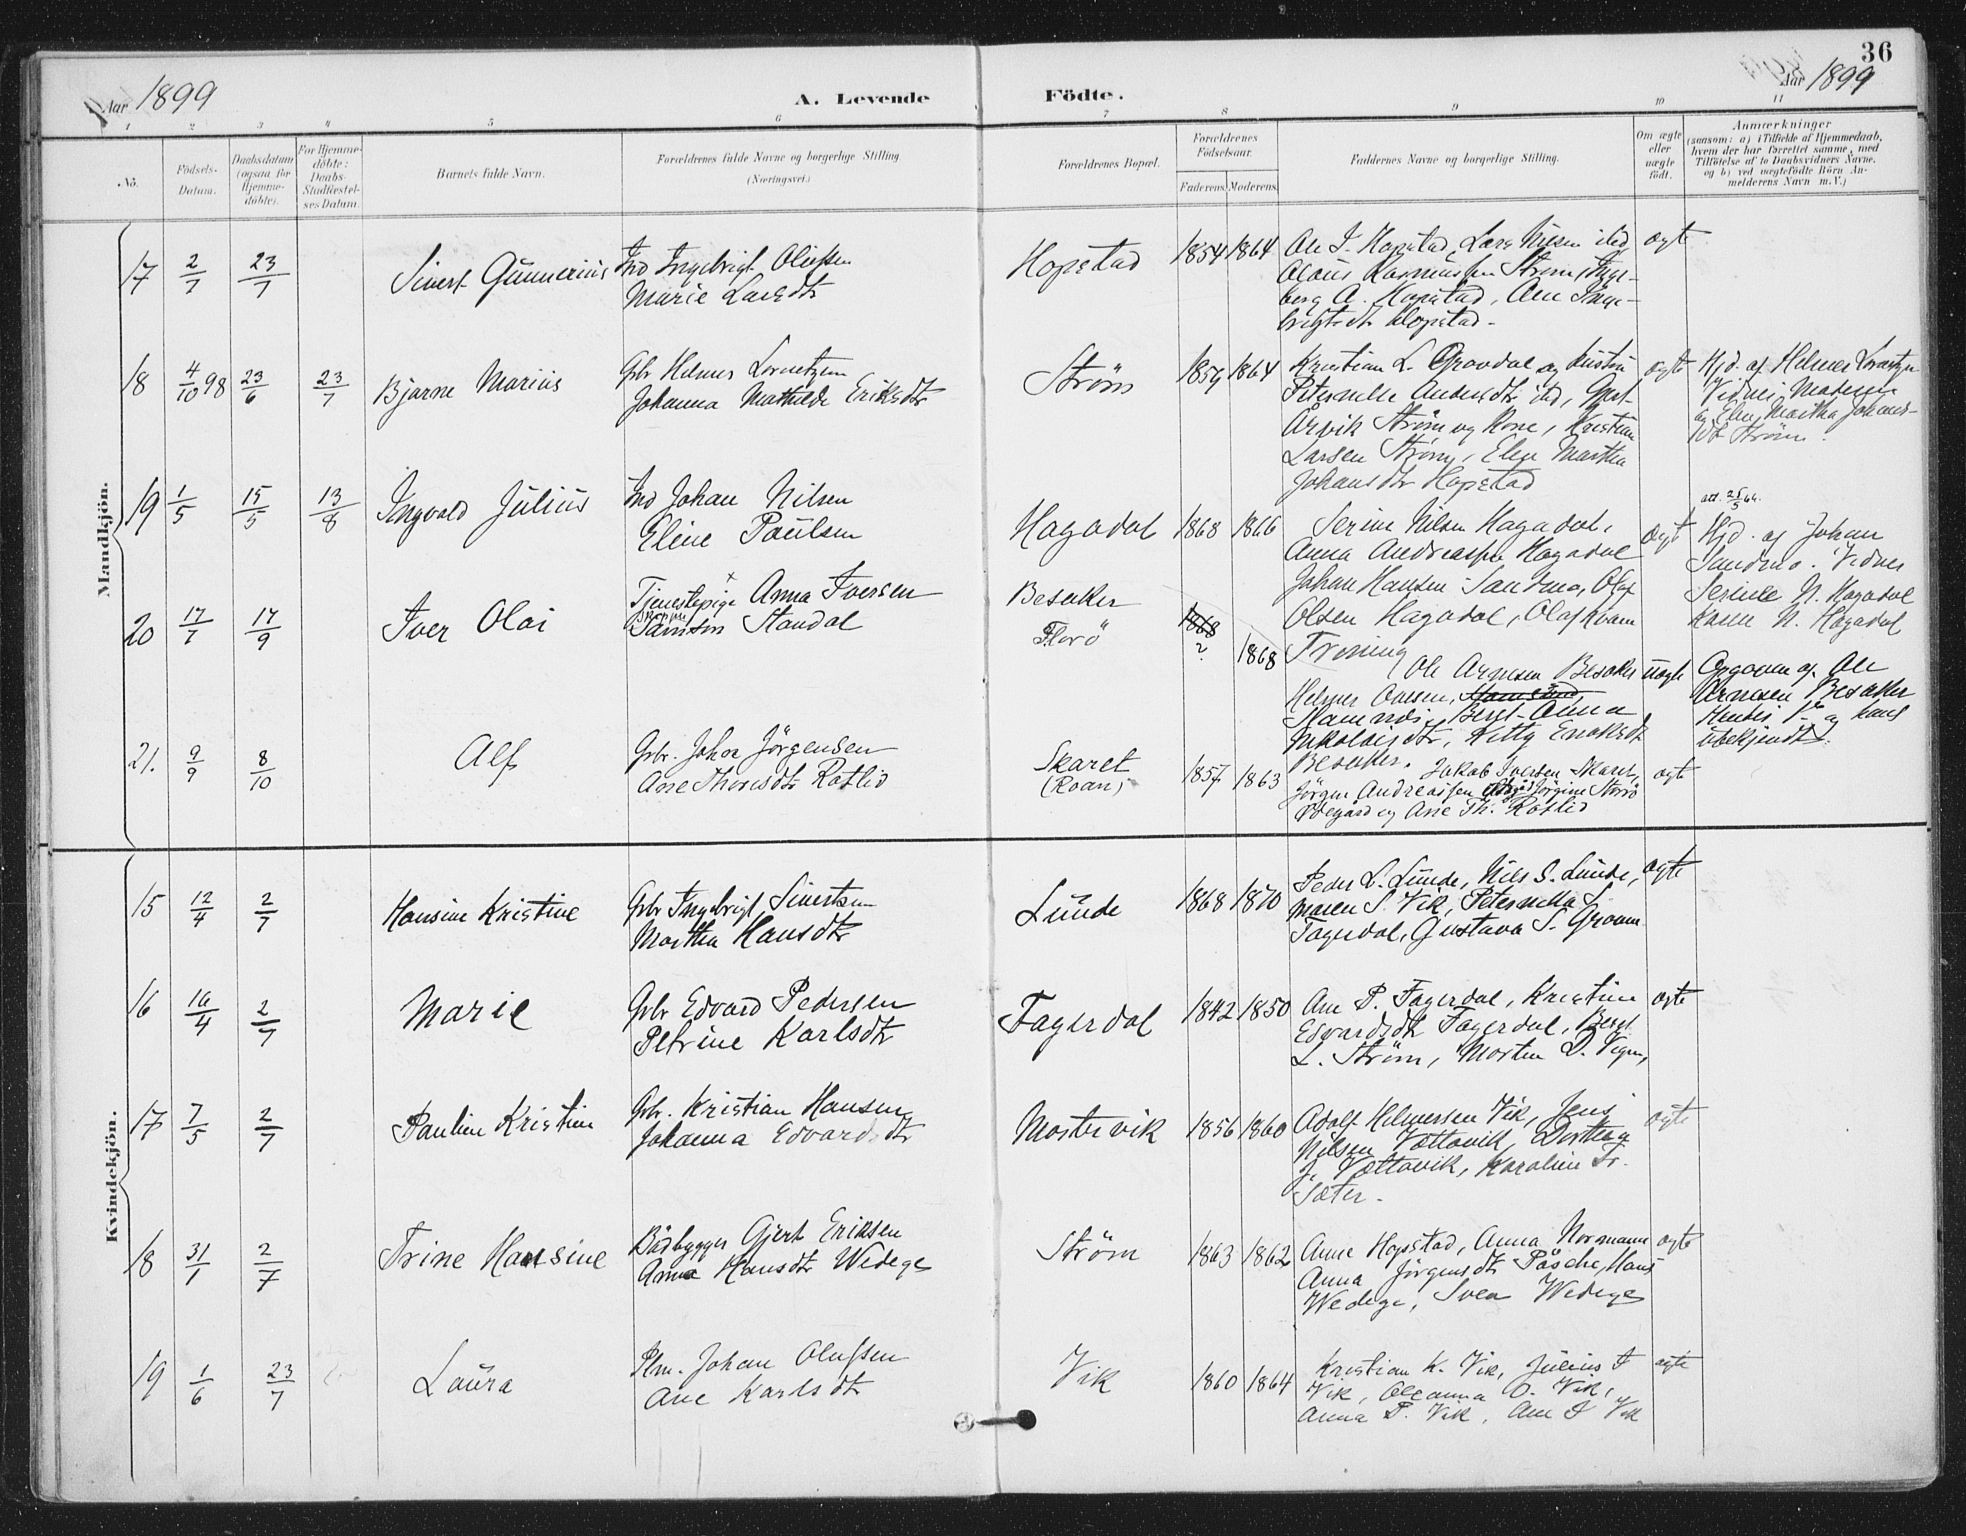 36
Aar 1899
A. Levende Födte.
Aar 1899
1 2 3 4 5 6 7 8 9 10 11
No.
Födsels-
Datum.
Daabsdatum
(ogsaa for
Hjemme-
döbte).
For Hjemme-
döbte:
Daabs-
Stadfæstel-
ses Datum.
Barnets fulde Navn.
Forældrenes fulde Navne og borgerlige Stilling
(Næringsvei.)
Forældrenes Bopæl.
Forældrenes
Födselsaar.
Faderens. Moderens.
Faddernes Navne og borgerlige Stilling.
Om ægte
eller
uægte
födt.
Anmærkninger
(saasom: a) i Tilfælde af Hjemmedaab,
hvem der har forrettet samme, med
Tilföielse af to Daabsvidners Navne.
og b) ved uægtefödte Börn An-
melderens Navn m. V.)
Mandkjön.
17 2/7 23/7 Sivert Gunnerius Ind Ingebrigt Olufsen
Marie Larsdtr
Hopstad 1854 1864 Ole I. Hopstad, Lars Nilsen ibd,
Olaus Rasmussen Strøm, Inge-
berg A. Hopstad, Ane Inge-
brigtsdtr Hopstad.
ægte
18 4/10 98 23/6 23/7 Bjarne Marius Gbr Helmer Lorentzen
Johanna Mathilde Eriksdtr
Strøm 1859 1864 Kristian L. Grovdal og hustru
Peternelle Andersdtr ibd,
Årvik Strøm og Kone, Kristian
Larsen Strøm, Elen Martha
Johansdtr Hopstad
ægte
Hjd. af Helmer Lorentzen
Vidner Moderen
og Elen Martha Johans-
dtr Strøm.
19 1/5 15/5 13/8 Ingvald Julius Ind Johan Nilsen
Eline Paulsen
Hagadal 1868 1866 Serine Nilsen Hagadal,
Anna Andreassen Hagadal
Johan Hansen Sandmo, Olaf
Olsen Hagadal, Olaf Kvam
Trøning
ægt
att. 25/5 64.
Hjd. af Johan
Sandmo. Vidner
Serine N. Hagadal
N. Hagadal
20 17/7 17/9 Iver Olai Tjenestepige Anna Iversen
Skipper
Samson Standal
Besaker
Florö
1868
?
1868
Ole Arnesen Besaker
Helmer Olsen,
Hamnes, Beret Anna
Nikolaisdtr, Kitty Enoksdtr
Besaker.
uægte
Opgaven af Ole
Arnesen Besaker
ubekjendt
21. 9/9 8/10 Alf Gbr. Johan Jörgensen
Ane Thoresdtr Rotlid
Skaret
(Roan)
1857 1863 Jakob Iversen Skaret,
Jörgen Andreassen Jörgine Storö
Ödegård og Ane Th. Rotlid
ægte
Kvindekjön.
15 12/4 2/7 Hansine Kristine Gbr Ingebrigt Sivertsen
Martha Hansdtr
Lunde 1868 1870 Peder L. Lunde, Nils S. Lunde,
Maren S. Vik, Peternella S.
Fagerdal, Gustava S.
ægte
16 16/4 2/7 Marie Gbr Edvard Pedersen
Petrine Karlsdtr
Fagerdal 1842 1850 Ane P. Fagerdal, Kristine
Edvardsdtr Fagerdal, Beret
L. Strøm, Morten D.
ægte
17 7/5 2/7 Pauline Kristine Gbr. Kristian Hansen
Johanna Edvardsdtr
Mostervik 1856 1860 Adolf Helmersen Vik, Jens
Nilsen Vættavik, Dorthea
J. Vættavik, Karoline Fr.
Sæter.
ægte
18 31/1 2/7 Trine Hansine Bådbygger Gjert Eriksen
Anna Hansdtr Wedege
Strøm 1863 1862 Anne Hopstad, Anna Normann
Anna Jörgensdtr Påsche, Hans
Wedege, Svea Wedege
ægte
19 1/6 23/7 Laura Plm. Johan Olufsen
Ane Karlsdtr
Vik 1860 1864 Kristian K. Vik, Julius I
Vik, Oleanna O. Vik,
Anna P. Vik, Ane I Vik
ægte